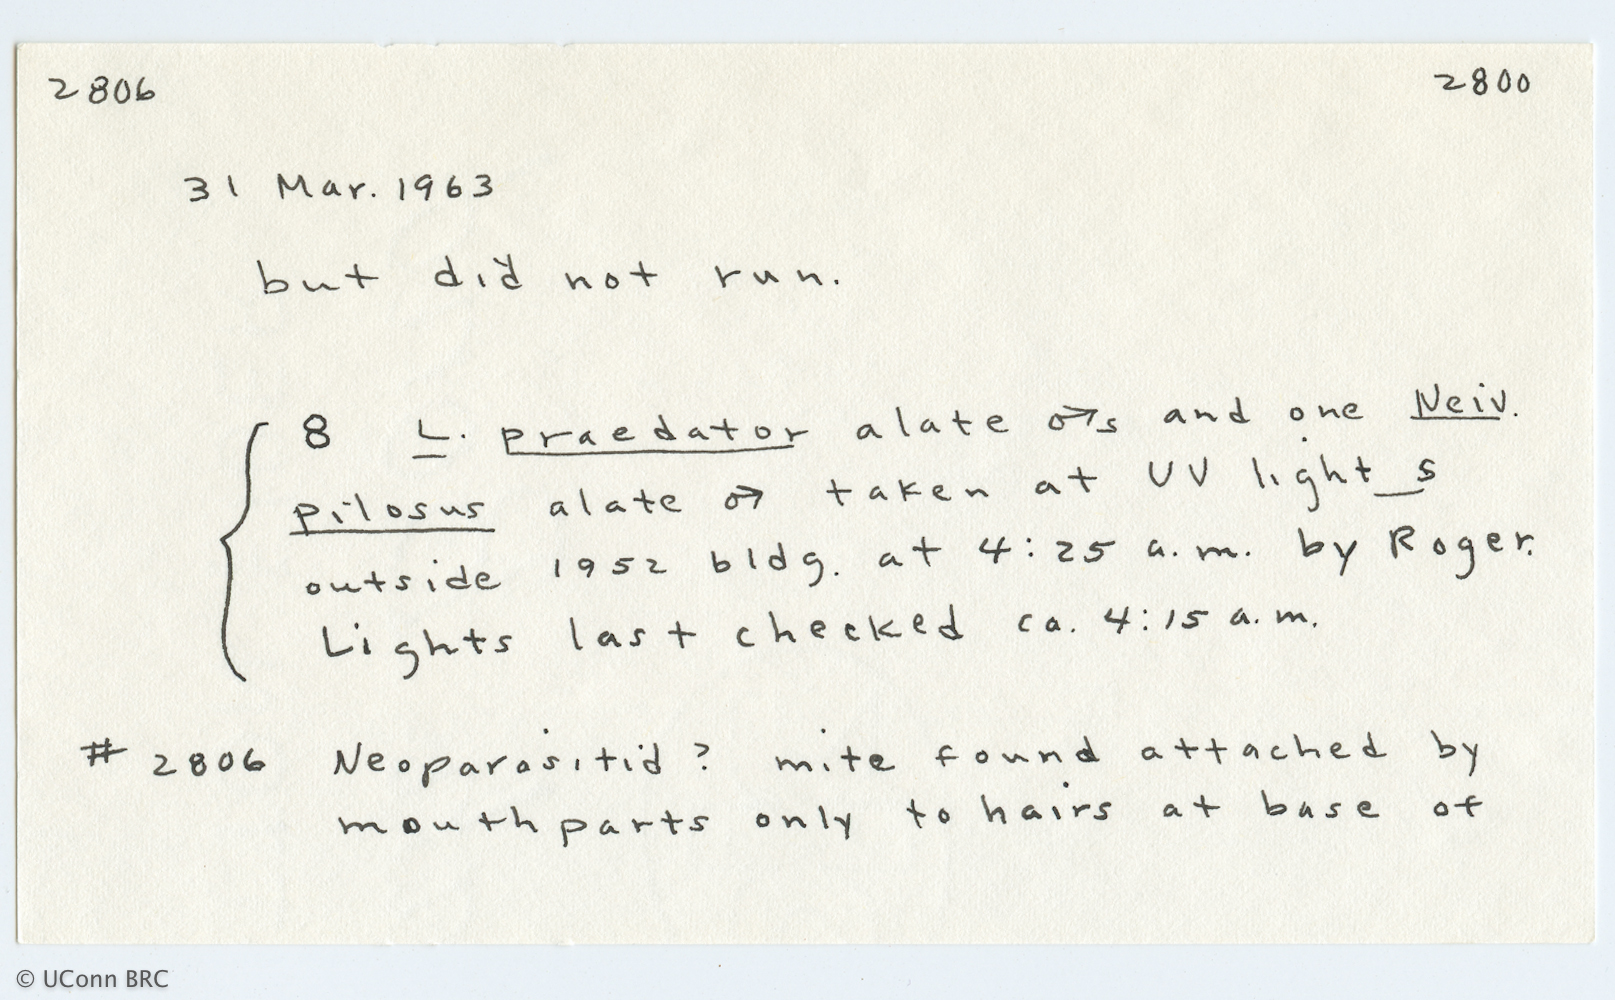 2806 2800
31 Mar. 1963
but did not run.
8 L. praedator alate ♂s and one Neiv.
pilosus alate ♂ taken at UV light_s
outside 1952 bldg. at 4:25 a.m. by Roger.
Lights last checked ca. 4:15 a.m.
# 2806 Neoparasitid? mite found attached by
mouthparts only to hairs at base of
© UConn BRC